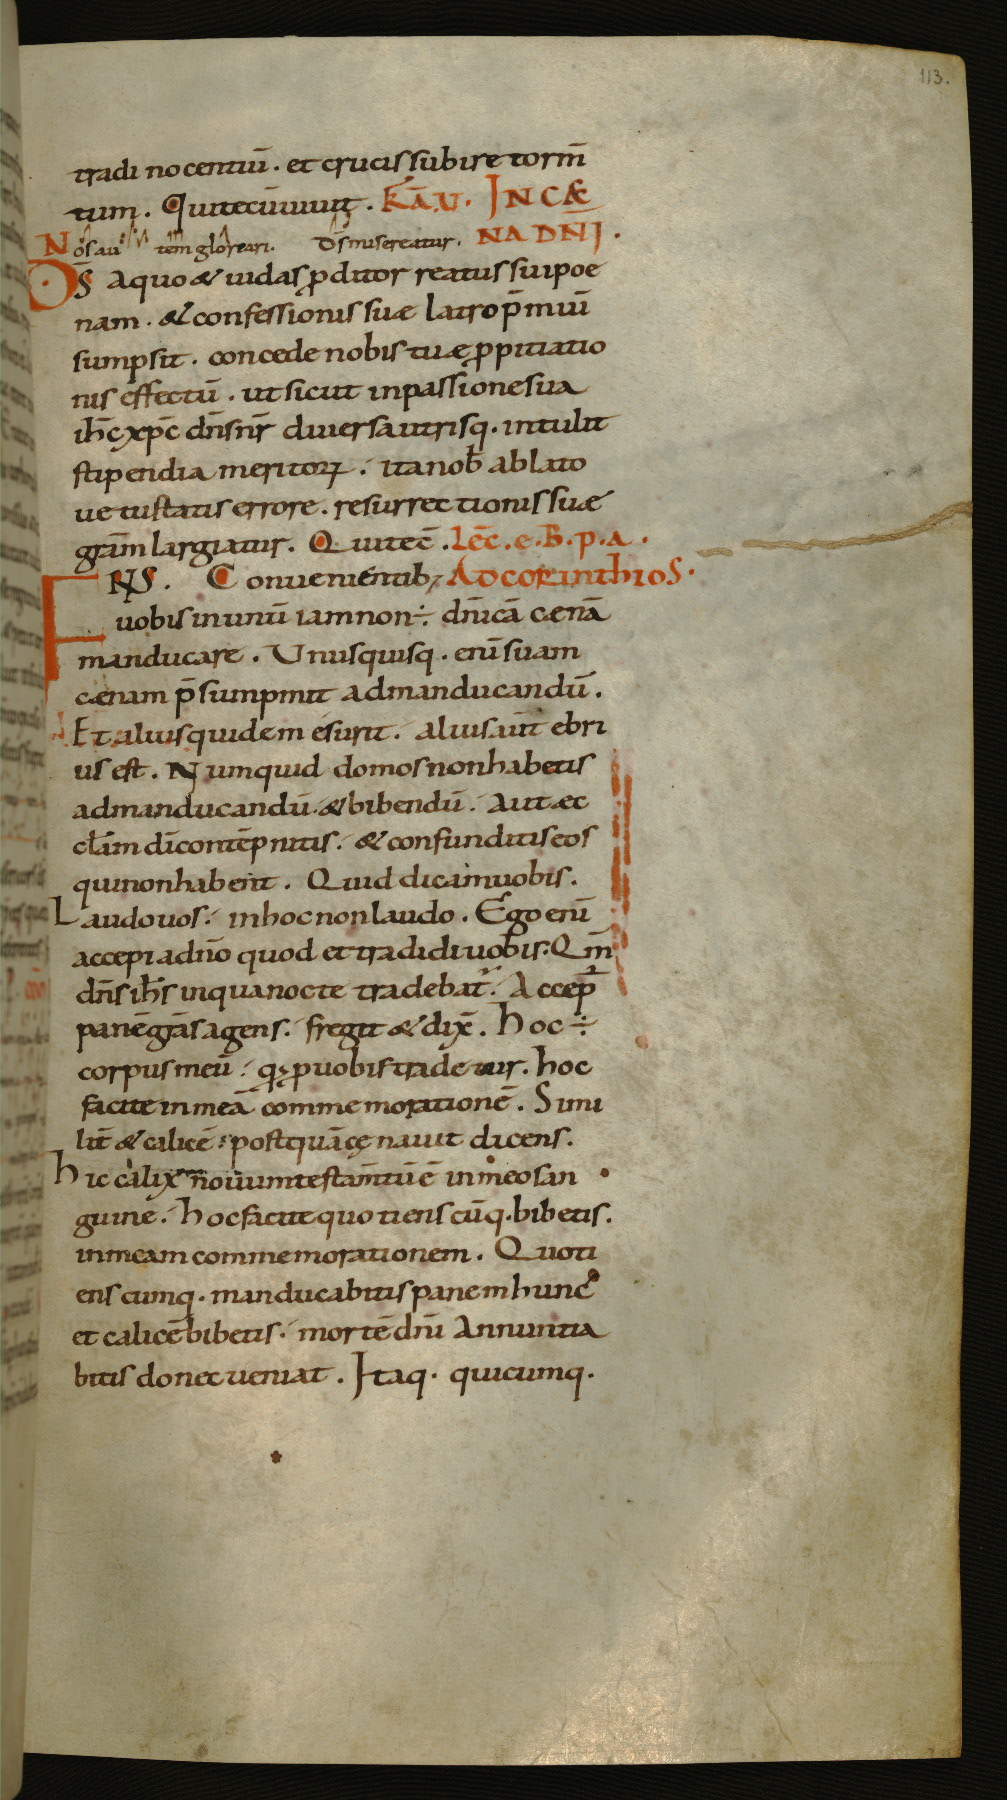 113.
tradi nocentiū. et crucis subire torm̄
tum. Qui tecū uiuit. K̄A. V. IN CÆ
Nos aūtem gloreari. D̄s misereatur. NA DN̄I.
D̄S A quo & iudas p̱ditor reatus sui poe
nam. & confessionis suæ latro p̄miū
sumpsit. concede nobis tuæ p̱pitiatio
nis effectū. ut sicut in passione sua
ih̄c xp̄c dn̄s nr̄ diuersa utrisq. intulit
stipendia meritoꝝ. ita nob̄ ablato
uetustatis errore. resurrectionis suæ
grām largiatur. Qui tec̄. Lēc. e. B. p. A.
FRS. Conuenientib; AD CORINTHIOS.
uobis in unū iam non ÷ dn̄icā cænā
manducare. Unusquisq. enī suam
cænam p̄sumpmit ad manducandū.
Et alius quidem esurit. alius aut̄ ebri
us est. Numquid domos non habetis
ad manducandū. & bibendū. Aut æc
cl̄am dī contēpnitis. & confunditis eos
qui non habent. Quid dicam uobis.
Laudo uos. in hoc non laudo. Ego enī
accepi a dn̄o quod et tradidi uobis. Qm̄
dn̄s ih̄s in qua nocte tradebat̄. Accep̄
panē gr̄as agens. fregit & dix̄. Hoc ÷
corpus meū. qd̄ p̱ uobis tradetur. hoc
facite in meā commemorationē. Simi
lit̄ & calicē. postquā cęnauit dicens.
Hic calix nouum testam̄tū ē in meo san
guine. Hoc facite quotienscūq. bibetis.
in meam commemorationem. Quoti
enscumq. manducabitis panem hunc
et calicē bibetis. mortē dn̄i Annuntia
bitis donec ueniat. Itaq. quicumq.